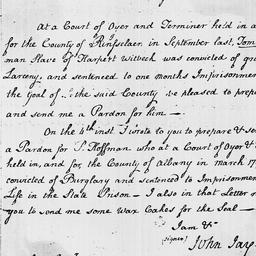 At a Court of Oyer and Terminer held in a
for the County of Rensselaer in September last, Tom
man Slave of Harpert Witbeck was convicted of gr
Larceny, and sentenced to one months Imprisonmen
the Goal of the said County be pleased to prep
and send me a Pardon for him —
On the 4th inst. I wrote to you to prepare & se
a Pardon for S. Hoffman who at a Court of Oyer &
held in, and for the County of Albany in march 17
convicted of Burglary and sentenced to Imprisonmen
Life in the State Prison — I also in that Letter
you to send me some Wax Cakes for the Seal —
I am &c
(signed) John Jay